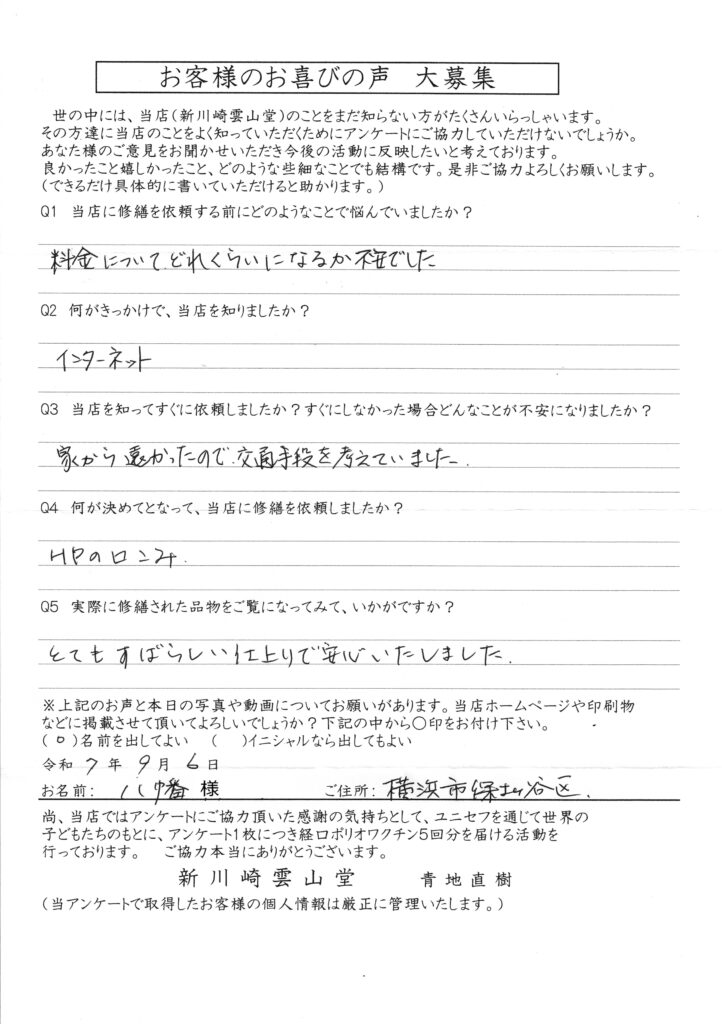 お客様のお喜びの声 大募集
世の中には、当店(新川崎雲山堂)のことをまだ知らない方がたくさんいらっしゃいます。
その方達に当店のことをよく知っていただくためにアンケートにご協力していただけないでしょうか。
あなた様のご意見をお聞かせいただき今後の活動に反映したいと考えております。
良かったこと嬉しかったこと、どのような些細なことでも結構です。是非ご協力よろしくお願いします。
(できるだけ具体的に書いていただけると助かります。)
Q1 当店に修繕を依頼する前にどのようなことで悩んでいましたか?
料金について、どれくらいになるか不安でした
Q2 何がきっかけで、当店を知りましたか?
インターネット
Q3 当店を知ってすぐに依頼しましたか?すぐにしなかった場合どんなことが不安になりましたか?
家から遠かったので、交通手段を考えていました。
Q4 何が決めてとなって、当店に修繕を依頼しましたか?
HPの口コミ.
Q5 実際に修繕された品物をご覧になってみて、いかがですか?
とてもすばらしい仕上りで安心いたしました.
※上記のお声と本日の写真や動画についてお願いがあります。当店ホームページや印刷物
などに掲載させて頂いてよろしいでしょうか?下記の中から○印をお付け下さい。
(○)名前を出してよい ( )イニシャルなら出してもよい
令和 7 年 9 月 6 日
お名前: 八幡 様 ご住所: 横浜市保土ヶ谷区.
尚、当店ではアンケートにご協力頂いた感謝の気持ちとして、ユニセフを通じて世界の
子どもたちのもとに、アンケート1枚につき経口ポリオワクチン5回分を届ける活動を
行っております。 ご協力本当にありがとうございます。
新川崎雲山堂 青地直樹
(当アンケートで取得したお客様の個人情報は厳正に管理いたします。)